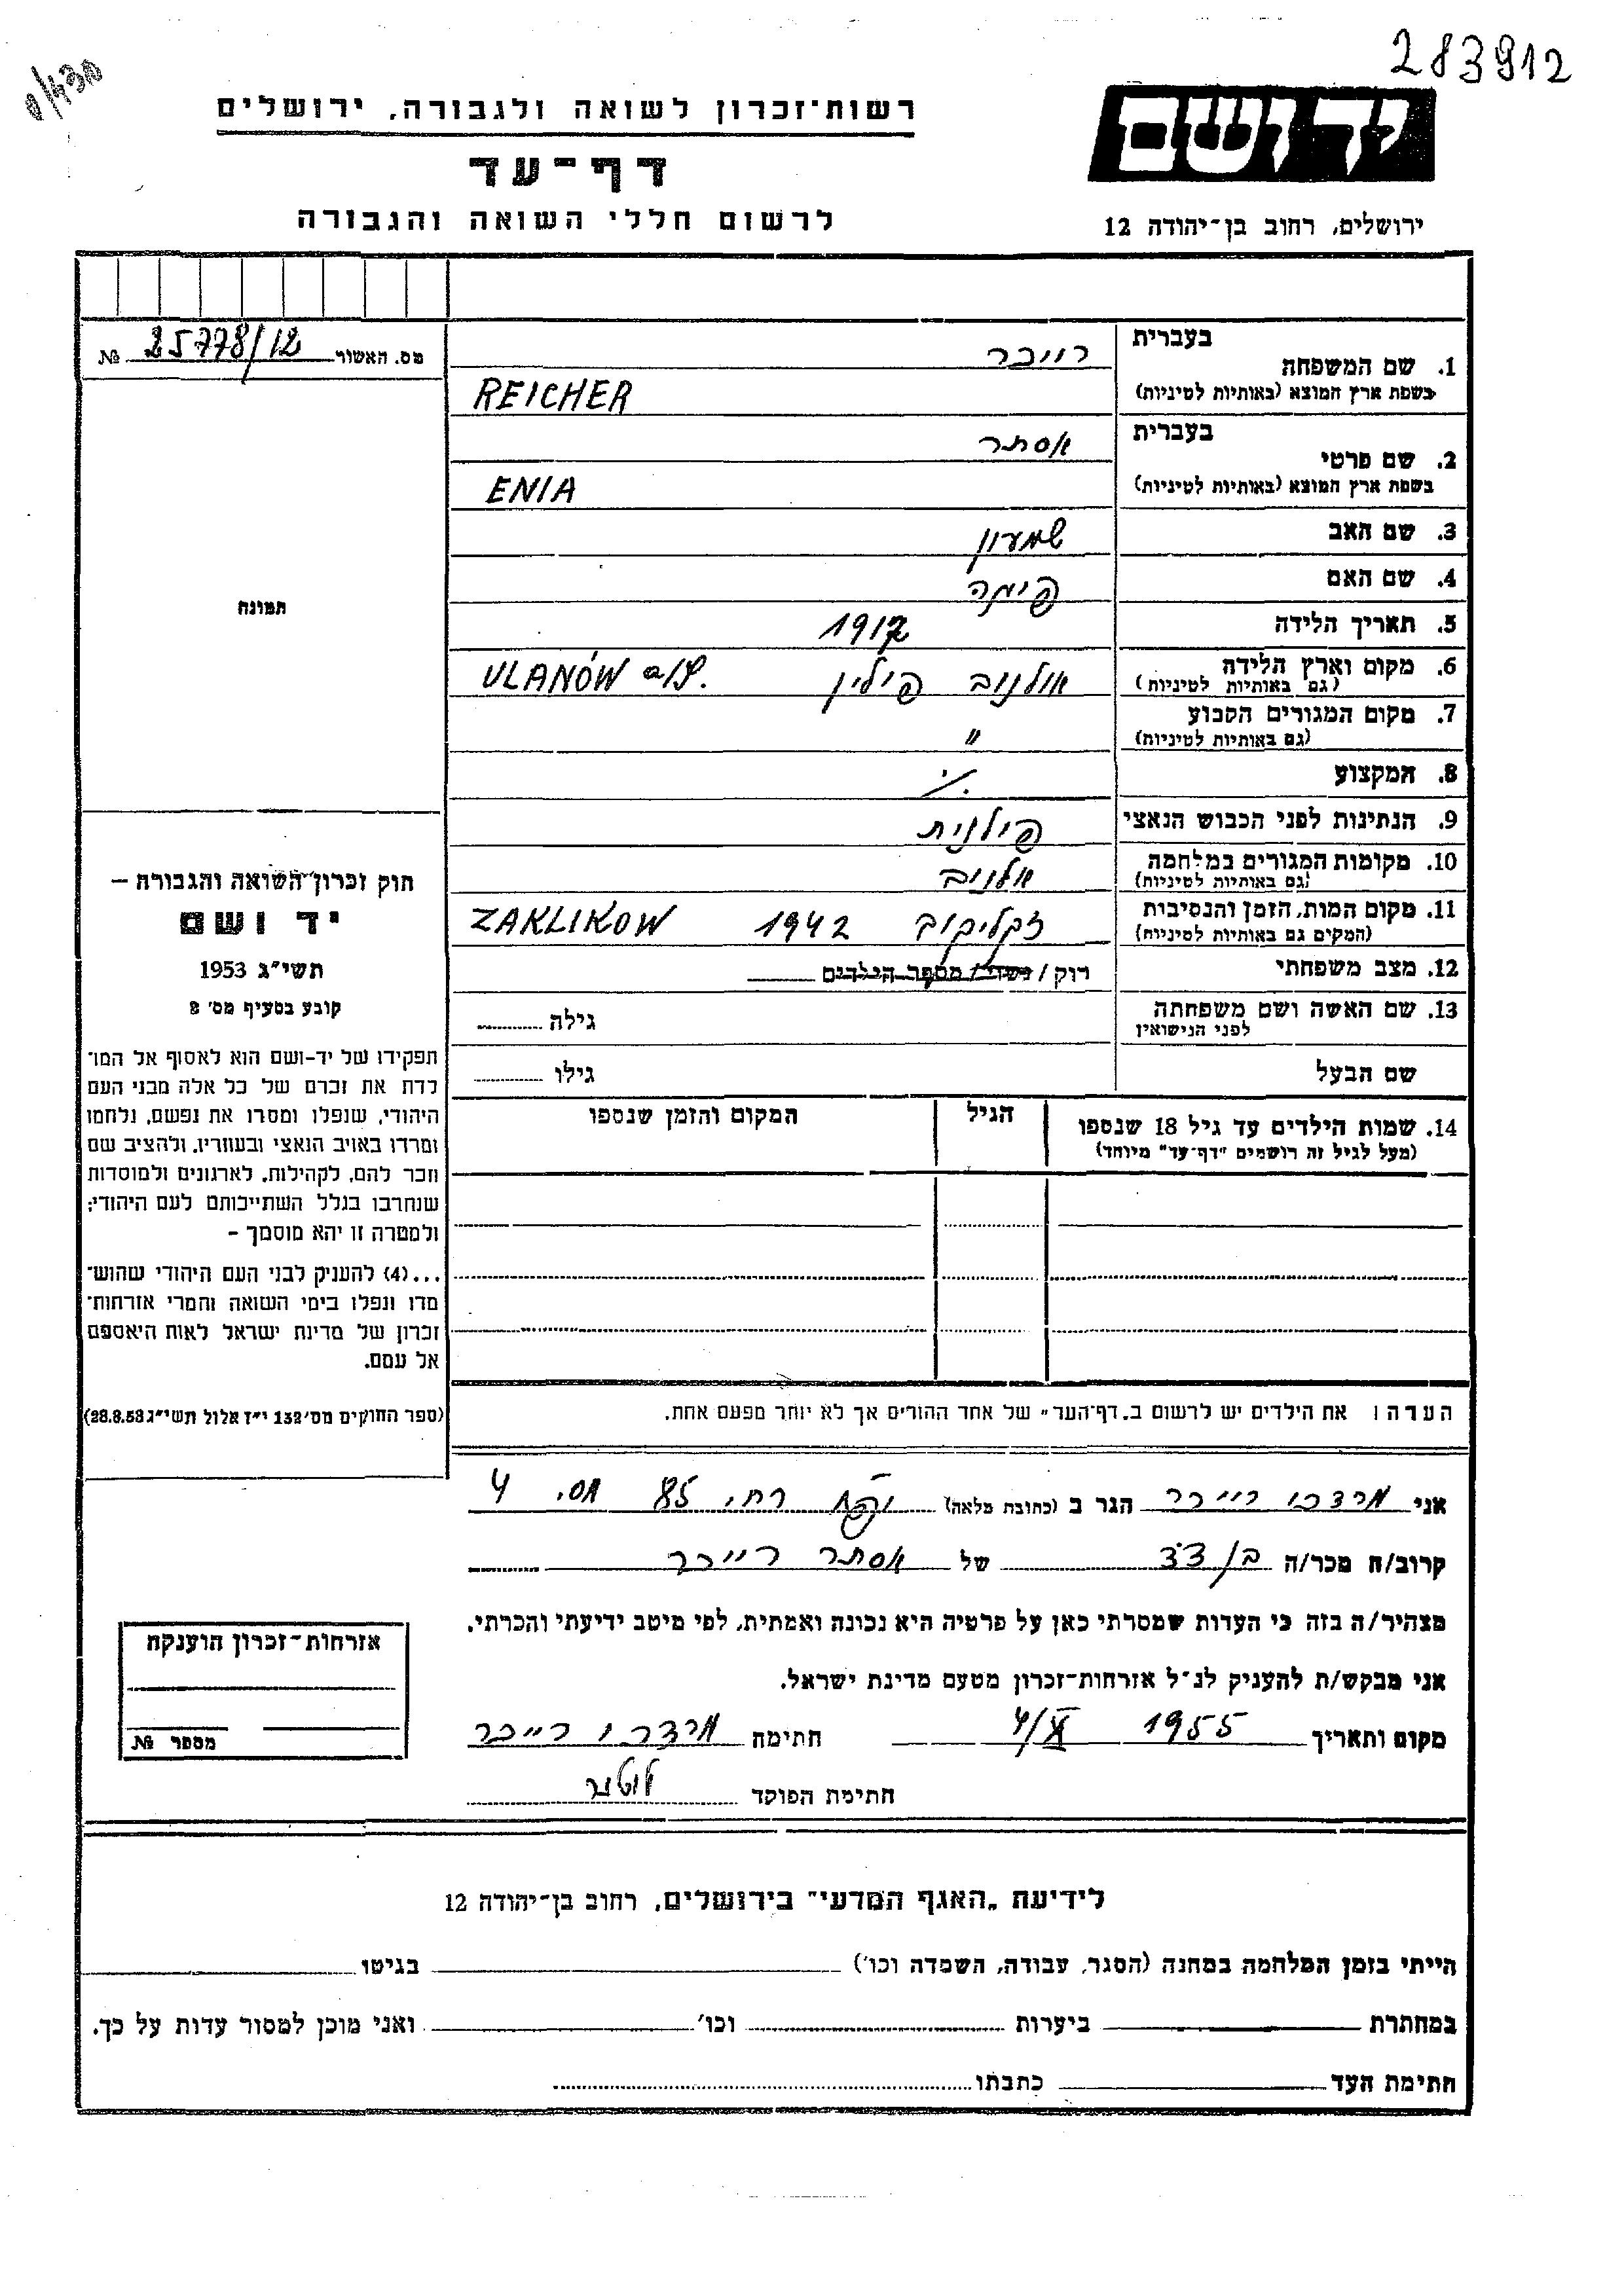 283912
יד ושם
רשות־זכרון לשואה ולגבורה, ירושלים
דף־עד
לרשום חללי השואה והגבורה
ירושלים, רחוב בן־יהודה 12
מס. האשור 25778/12 №
בעברית
רייכר
1. שם המשפחה
בשפת ארץ המוצא (באותיות לטיניות)
REICHER
בעברית
אסתר
2. שם פרטי
בשפת ארץ המוצא (באותיות לטיניות)
ENIA
3. שם האב שמעון
4. שם האם
5. תאריך הלידה 1917
6. מקום וארץ הלידה
(גם באותיות לטיניות)
אולנוב פולין ULANÓW a/S.
7. מקום המגורים הקבוע
(גם באותיות לטיניות)
"
8. המקצוע ./.
9. הנתינות לפני הכבוש הנאצי פולנית
10. מקומות המגורים במלחמה
(גם באותיות לטיניות)
אלנוב
11. מקום המות, הזמן והנסיבות
(המקום גם באותיות לטיניות)
זקליקוב 1942 ZAKLIKOW
12. מצב משפחתי רוק / נשוי / מספר הילדים
13. שם האשה ושם משפחתה
לפני הנישואין
גילה
שם הבעל גילו
14. שמות הילדים עד גיל 18 שנספו
(מעל לגיל זה רושמים "דף־עד" מיוחד)
הגיל
המקום והזמן שנספו
הערה: את הילדים יש לרשום ב„דף־העד" של אחד ההורים אך לא יותר מפעם אחת.
תמונה
חוק זכרון השואה והגבורה –
יד ושם
תשי"ג 1953
קובע בסעיף מס' 2
תפקידו של יד-ושם הוא לאסוף אל המו־
לדת את זכרם של כל אלה מבני העם
היהודי, שנפלו ומסרו את נפשם, נלחמו
ומרדו באויב הנאצי ובעוזריו, ולהציב שם
וזכר להם, לקהילות, לארגונים ולמוסדות
שנחרבו בגלל השתייכותם לעם היהודי;
ולמטרה זו יהא מוסמך –
...(4) להעניק לבני העם היהודי שהוש־
מדו ונפלו בימי השואה והמרי אזרחות־
זכרון של מדינת ישראל לאות היאספם
אל עמם.
(ספר החוקים מס' 132 י"ז אלול תשי"ג 28.8.53)
אני מרדכי רייכר הגר ב (כתובת מלאה) יפו רח. 85 מס. 4
קרוב/ה מכר/ה בן דד של אסתר רייכר
מצהיר/ה בזה כי העדות שמסרתי כאן על פרטיה היא נכונה ואמתית, לפי מיטב ידיעתי והכרתי.
אני מבקש/ת להעניק לנ"ל אזרחות־זכרון מטעם מדינת ישראל.
מקום ותאריך 1955 4/XI חתימה מרדכי רייכר
חתימת הפוקד
אזרחות־זכרון הוענקה
מספר №
לידיעת „האגף המדעי" בירושלים, רחוב בן־יהודה 12
הייתי בזמן המלחמה במחנה (הסגר, עבודה, השמדה וכו') בגיטו
במחתרת ביערות וכו' ואני מוכן למסור עדות על כך.
חתימת העד כתבתו